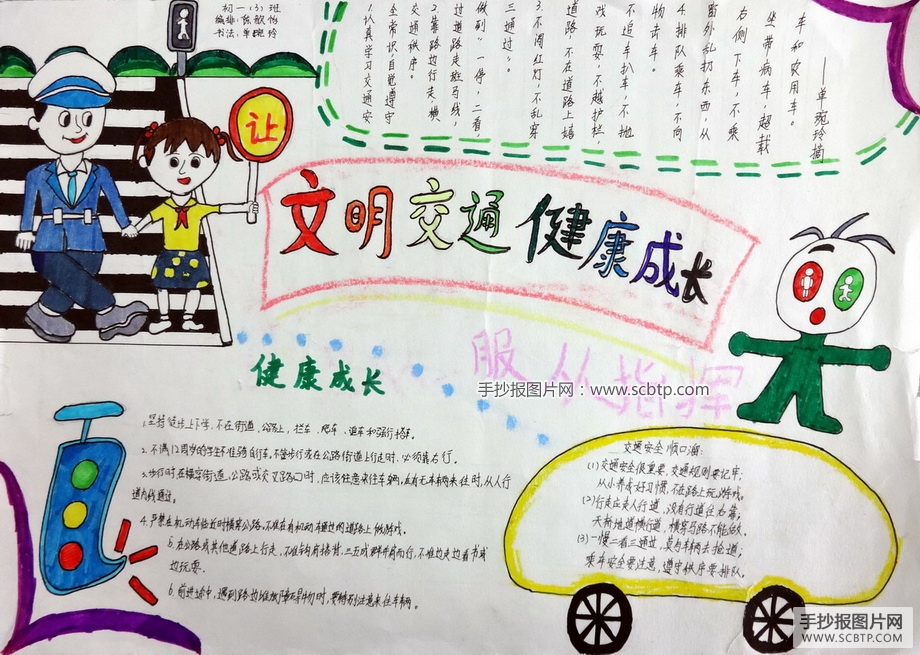 初一(3)班
编排:陈歆怡
书法:单琬玲
让
1.认真学习交通安
全常识自觉遵守
交通秩序。
2.靠路边行走,横
过道路走斑马线,
做到“一停,二看,
三通过”。
3.不闯红灯,不乱穿
道路,不在道路上嬉
戏玩耍,不越护栏,
不追车扒车,不抛
物击车。
4.排队乘车,不向
窗外乱扔东西,从
右侧下车,不乘
坐带病车,超载
车和农用车。
——单琬玲摘
文明交通 健康成长
健康成长
服从指挥
手抄报图片网:www.scbtp.com
1.坚持徒步上下学,不在街道、公路上,拦车、爬车、追车和强行搭车。
2.不满12周岁的学生不准骑自行车,不管步行或在公路街道上行走时,必须靠右行。
3.步行时在横穿街道、公路或交叉路口时,应该注意来往车辆,在看无车辆来往时,从人行
道九线通过。
4.严禁在机动车临近时横穿公路,不准在有机动车通过的道路上做游戏。
5.在公路或其他道路上行走,不准钩肩搭背,三五成群并肩而行,不准边走边看书或
边玩耍。
6.前进途中,遇到路边堆放障碍物时,要特别注意来往车辆。
交通安全顺口溜:
(1)交通安全很重要,交通规则要记牢,
从小养成好习惯,不在路上玩游戏。
(2)行走应走人行道,没有行道往右靠,
天桥地道横行道,横穿马路不能做。
(3)一慢二看三通过,莫与车辆去抢道,
乘车安全要注意,遵守秩序要排队。
手抄报图片网
WWW.SCBTP.COM